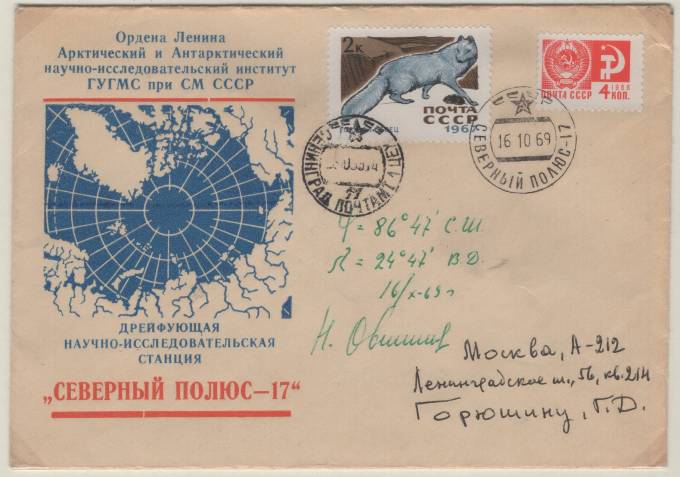 Ордена Ленина
Арктический и Антарктический
научно-исследовательский институт
ГУГМС при СМ СССР
ДРЕЙФУЮЩАЯ
НАУЧНО-ИССЛЕДОВАТЕЛЬСКАЯ
СТАНЦИЯ
„СЕВЕРНЫЙ ПОЛЮС—17“
2к
ПОЧТА
СССР
196
1966
ПОЧТА СССР 4 КОП.
ЛЕНИНГРАД ПОЧТАМТ
СЕВЕРНЫЙ ПОЛЮС-17
16 10 69
φ = 86°47' С.Ш.
λ = 24°47' В.Д.
16/X-69 г
Н.
Москва, А-212
Ленинградское ш., 56, кв. 214
Горюшину, Г.Д.